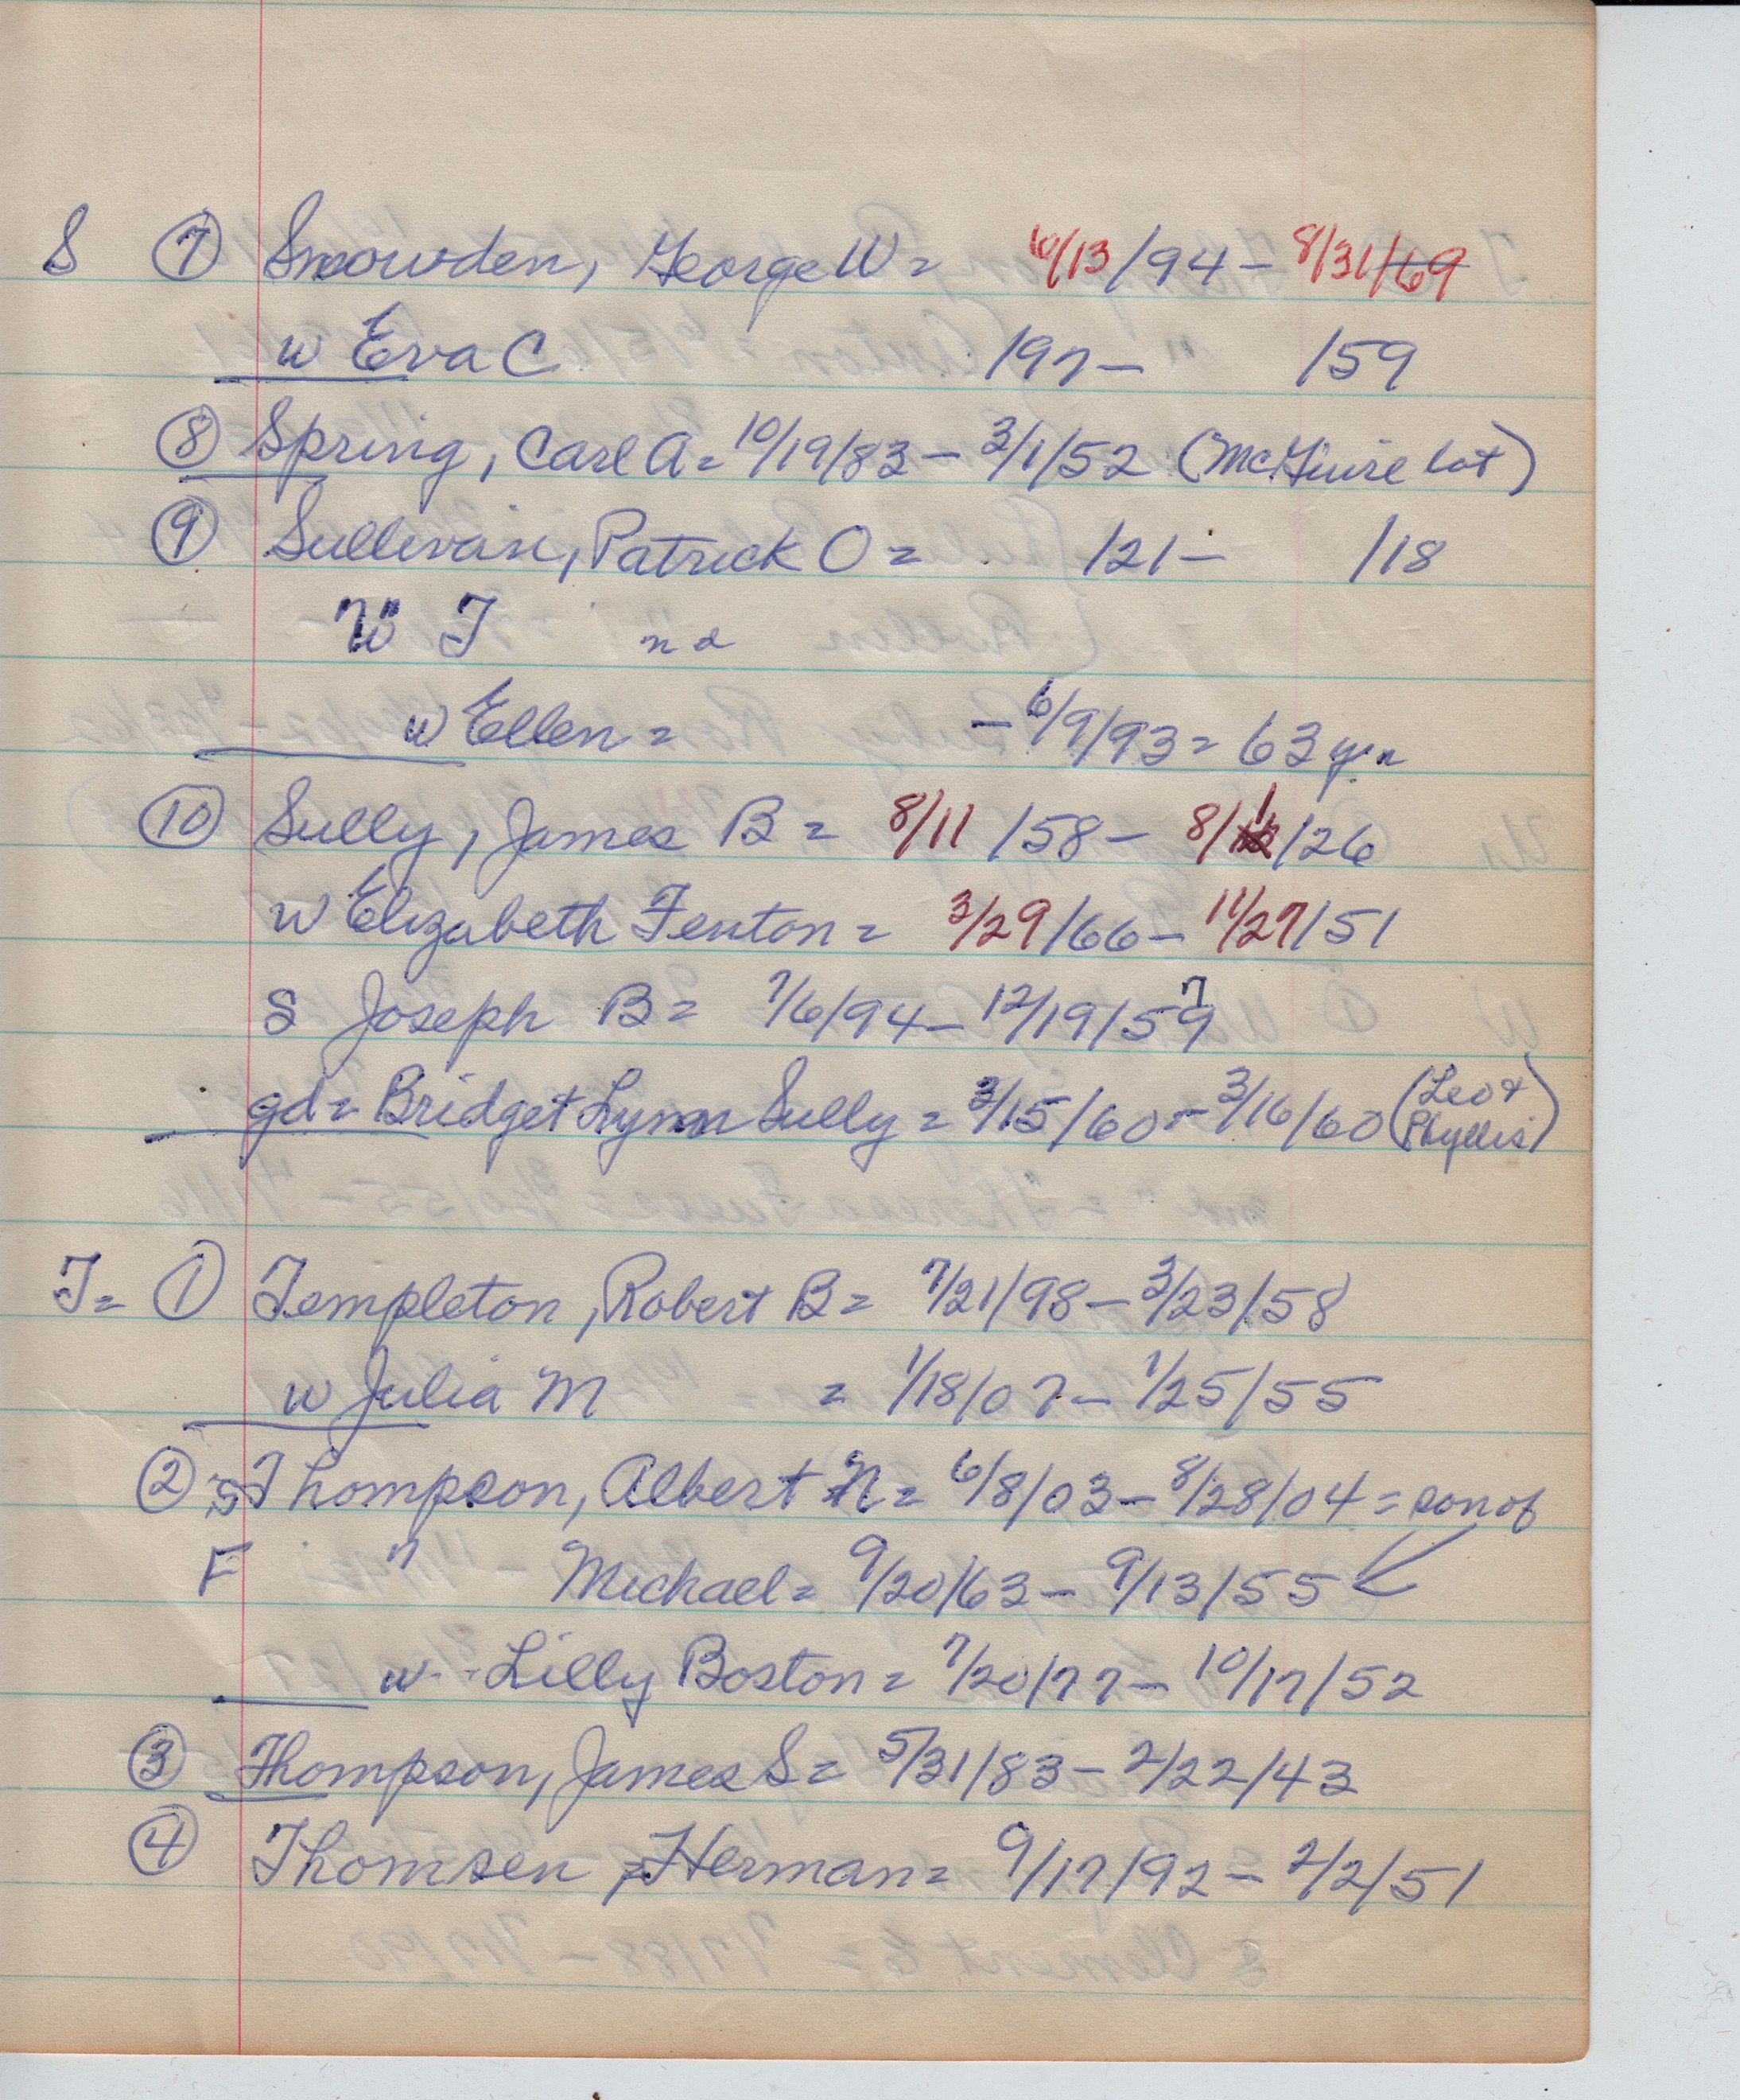 S ⑦ Snowden, George W = 10/13/94 - 8/31/69
w Eva C /97 - /59
⑧ Spring, Carl A = 10/19/83 - 3/1/52 (McGuire lot)
⑨ Sullivan, Patrick O = /21 - /18
W T nd
w Ellen = - 6/9/93 = 63 yr
⑩ Sully, James B = 8/11/58 - 8/11/26
w Elizabeth Fenton = 3/29/66 - 11/27/51
S Joseph B = 7/6/94 - 12/19/57
gd = Bridget Lynn Sully = 3/15/60 - 3/16/60 (Leo & Phyllis)
T = ① Templeton, Robert B = 7/21/98 - 3/23/58
w Julia M = 1/18/07 - 1/25/55
② S Thompson, Albert N = 6/8/03 - 8/28/04 = son of
F " Michael = 9/20/63 - 9/13/55
w - Lilly Boston = 7/20/77 - 10/17/52
③ Thompson, James S = 5/31/83 - 2/22/43
④ Thomsen, Herman = 9/17/92 - 2/2/51